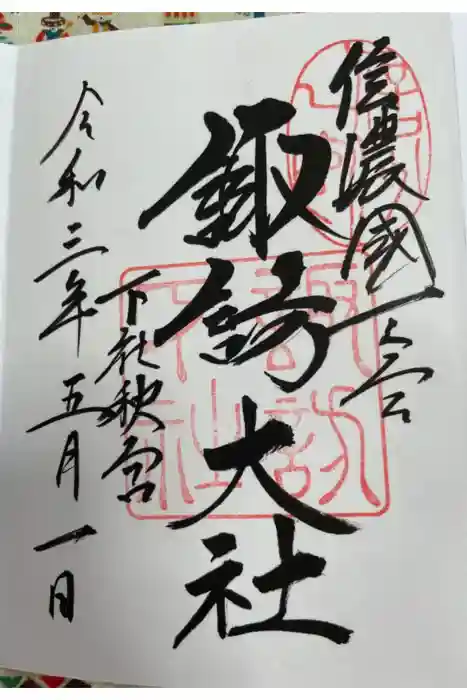 信濃國一之宮
諏訪大社
下社秋宮
令和三年五月一日
諏訪
下社